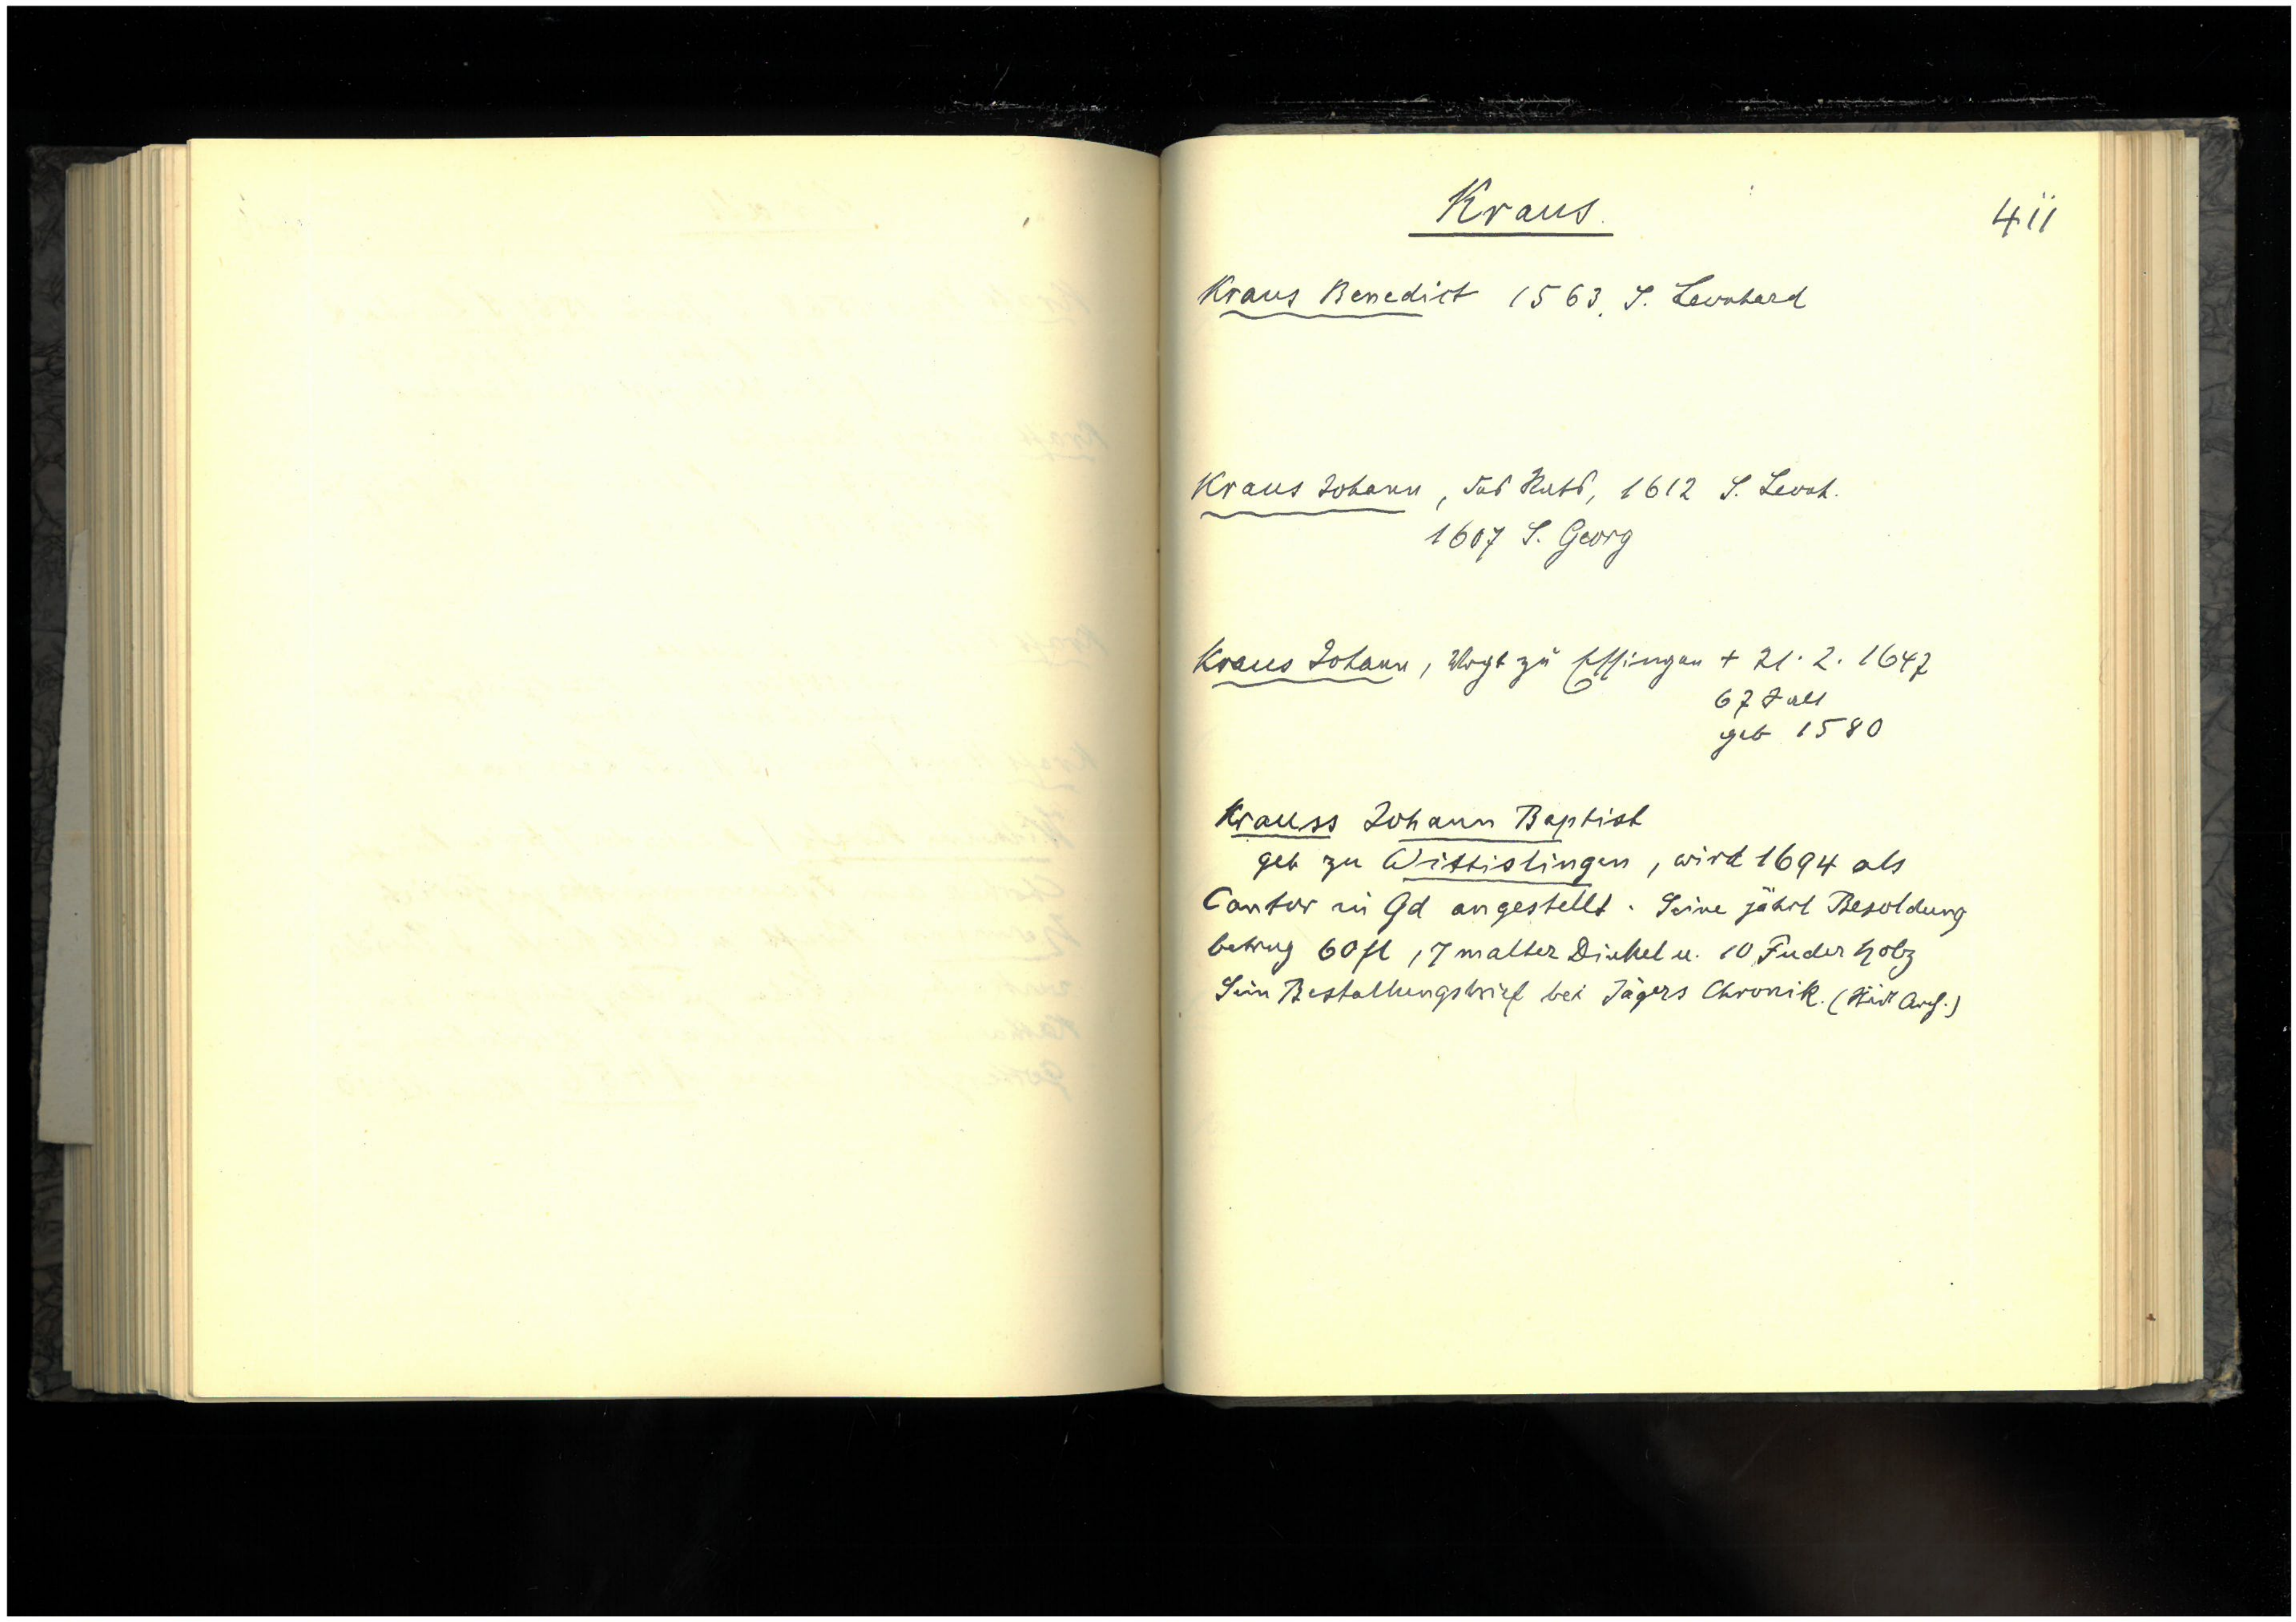 Kraus.
411
Kraus Benedict 1563. S. Leonhard
Kraus Johann, des Rats, 1612 S. Leonh.
1607 S. Georg
Kraus Johann, Vogt zu Essingen + 21. 2. 1647
67 J alt
geb 1580
Krauss Johann Baptist
geb zu Wittislingen, wird 1694 als
Cantor in Gd angestellt. Seine jährl Besoldung
betrug 60 fl, 7 malter Dinkel u. 10 Fuder Holz
Sein Bestallungsbrief bei Jägers Chronik. (Städt Arch.)